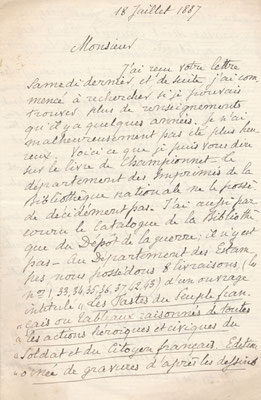 18 Juillet 1887
Monsieur
J'ai reçu votre lettre
Samedi dernier et de suite j'ai com
mencé à rechercher si je pouvais
trouver plus de renseignements
qu'il y a quelques années. Je n'ai
malheureusement pas été plus heu
reux. Voici ce que je puis vous dire
sur le livre de Championnet. Le
département des Imprimés de la
Bibliothèque nationale ne le possè
de décidément pas. J'ai aussi par
couru le Catalogue de la Bibliothè
que du Dépot de la guerre; il n'y est
pas — Au Département des Estam
pes nous possédons 8 livraisons (les
nos 1, 33, 34, 35, 36, 37, 42, 43) d'un ouvrage
intitulé "Les Fastes du Peuple fran
"çais ou tableaux raisonnés de toutes
"les actions héroiques et civiques du
"Soldat et du Citoyen français. Edition
"ornée de gravures d'après les dessins